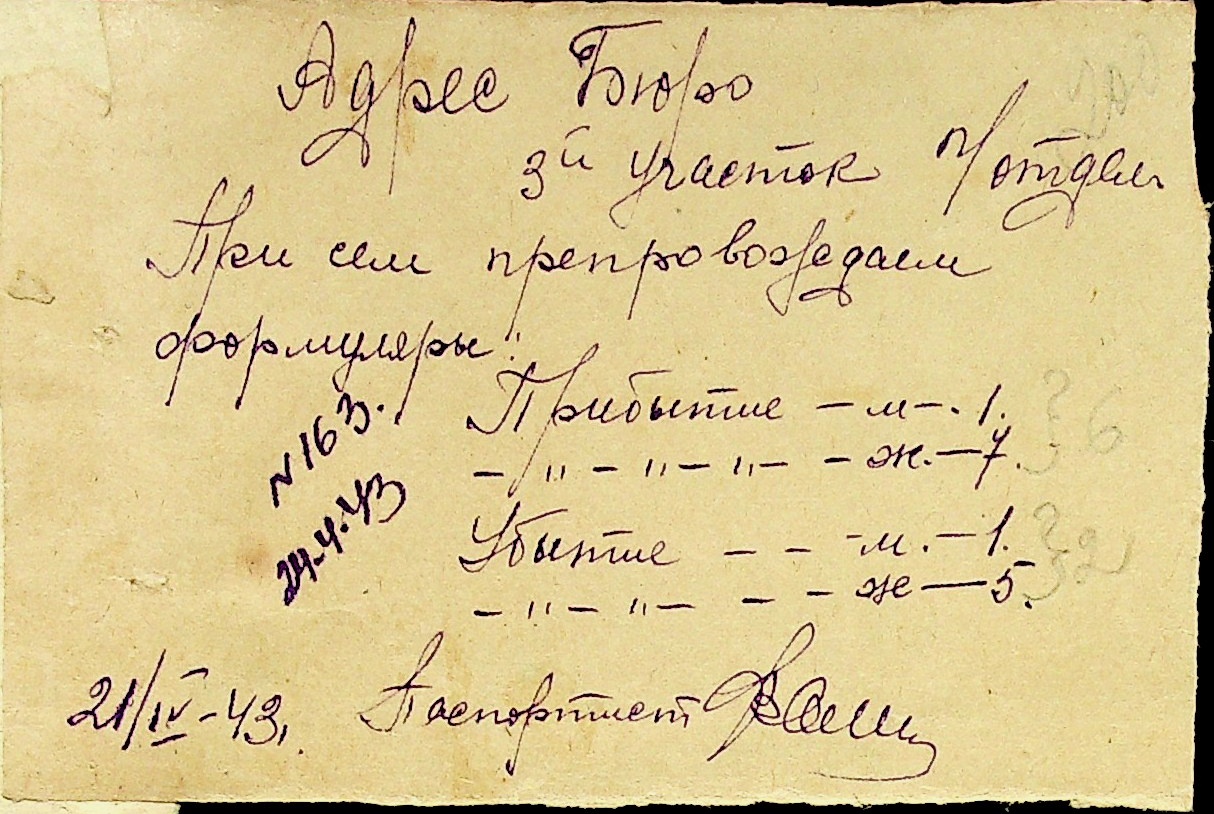 Адрес Бюро
3й участок п/отдел.
При сем препровождаем
формуляры:
Прибытие – м – . 1.
– " – " – " – – ж. – 7.
Убытие – – – м. – 1.
– " – " – – – ж – 5.
N 163.
24.4.43
21/IV – 43. Паспортист
} 6
} 2